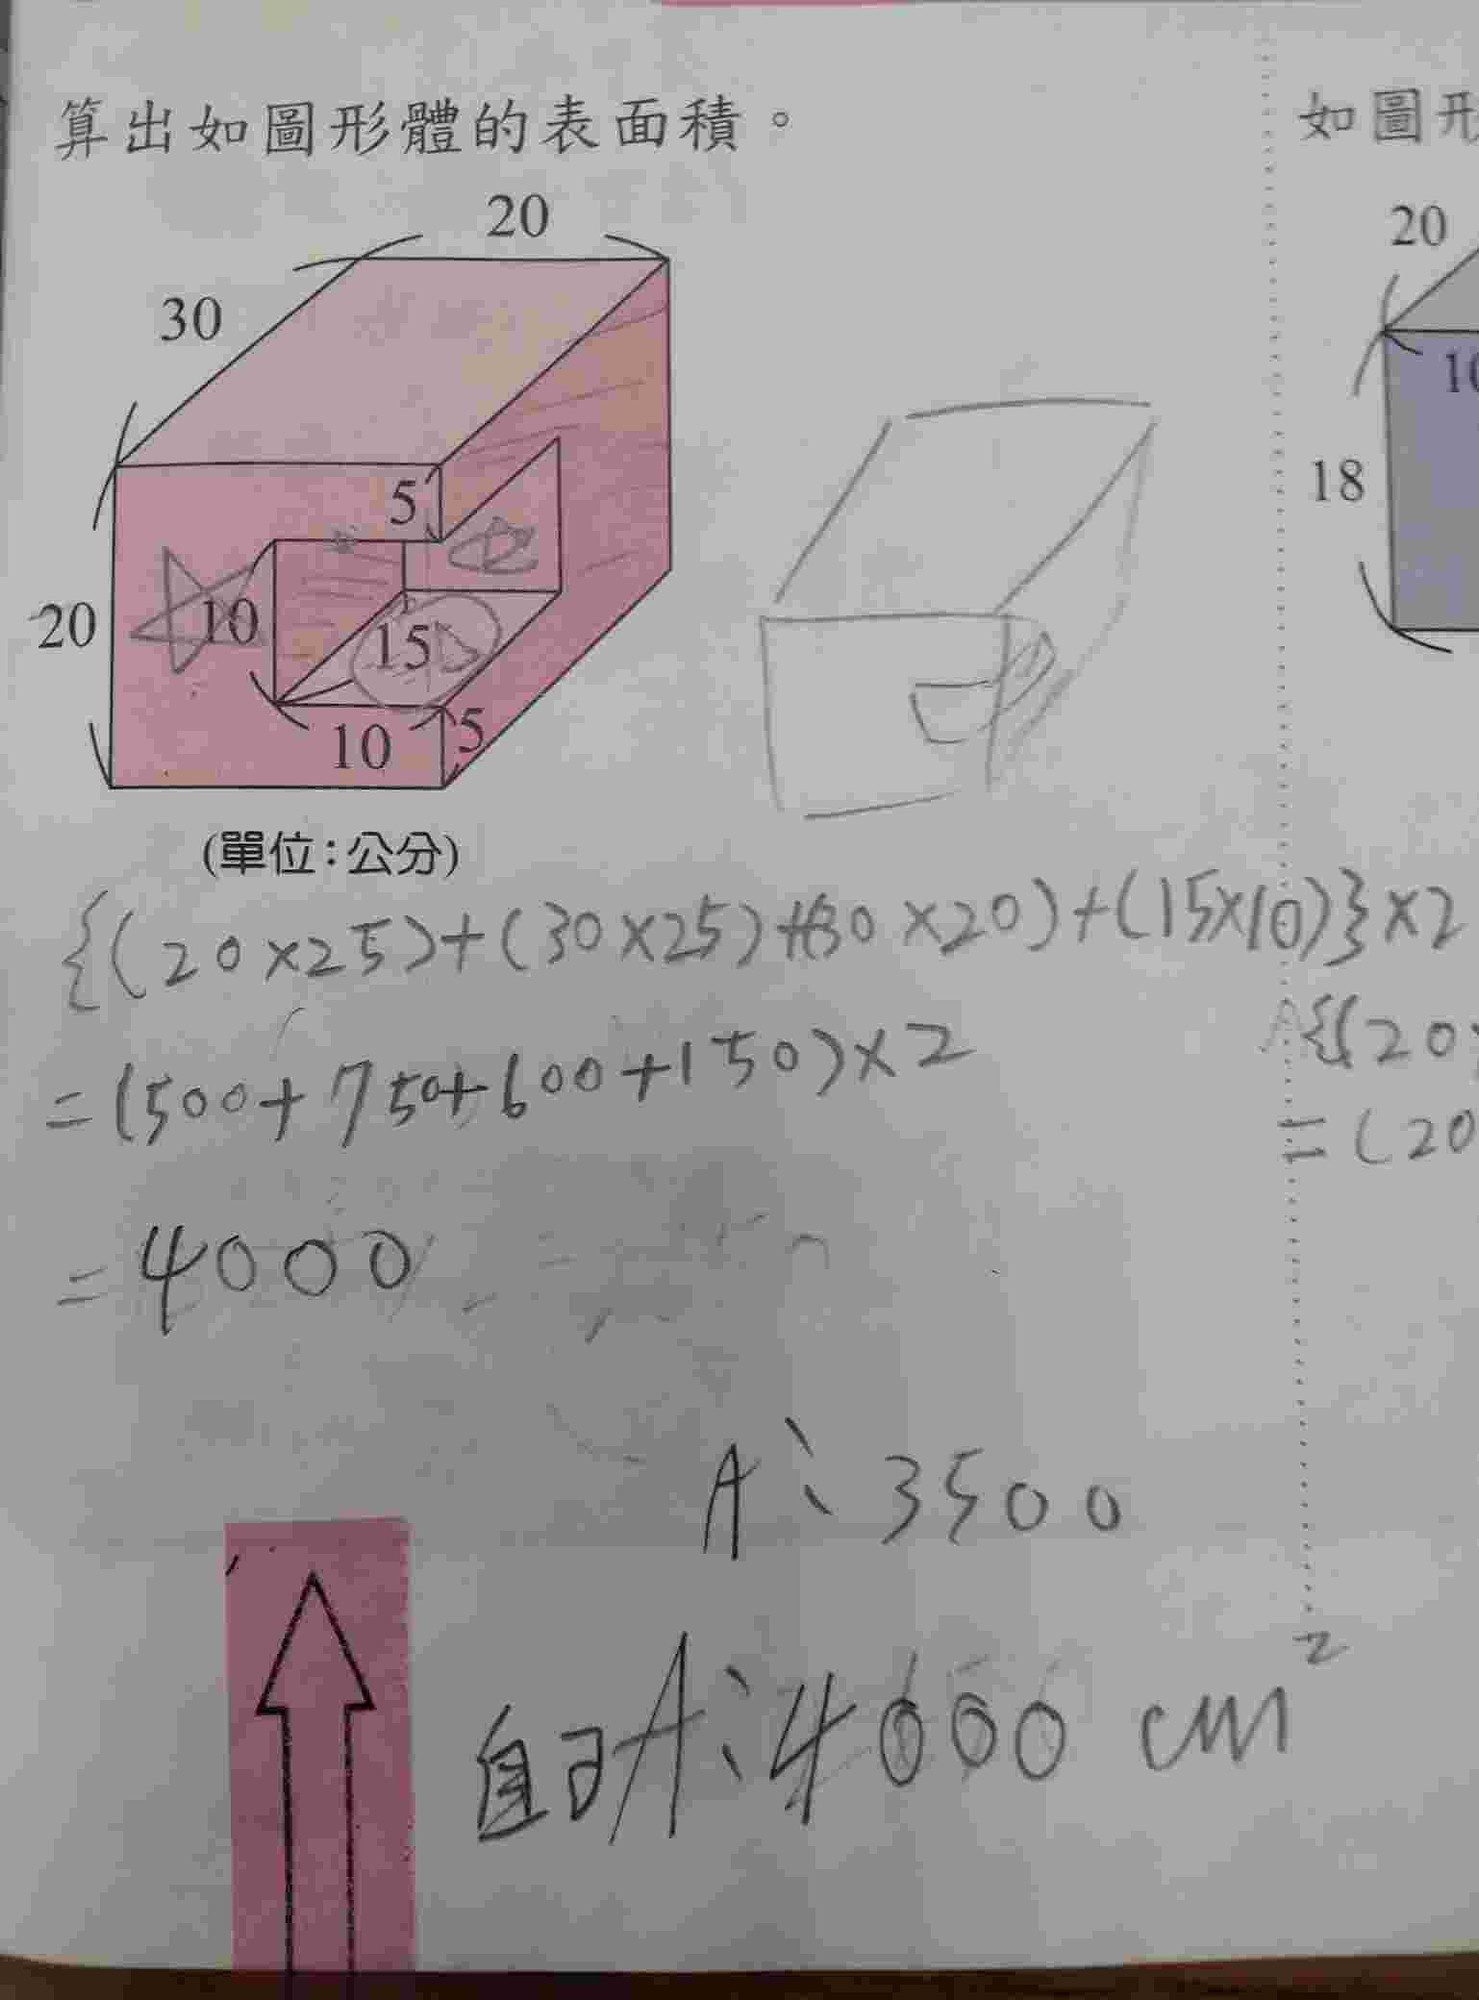 算出如圖形體的表面積。
如圖形
20
30
5
20
10
15
10
5
20
10
18
(單位:公分)
{(20×25)+(30×25)+(30×20)+(15×10)}×2
=(500+750+600+150)×2
=4000
{(20
=(20
A:3500
A:4000 cm²